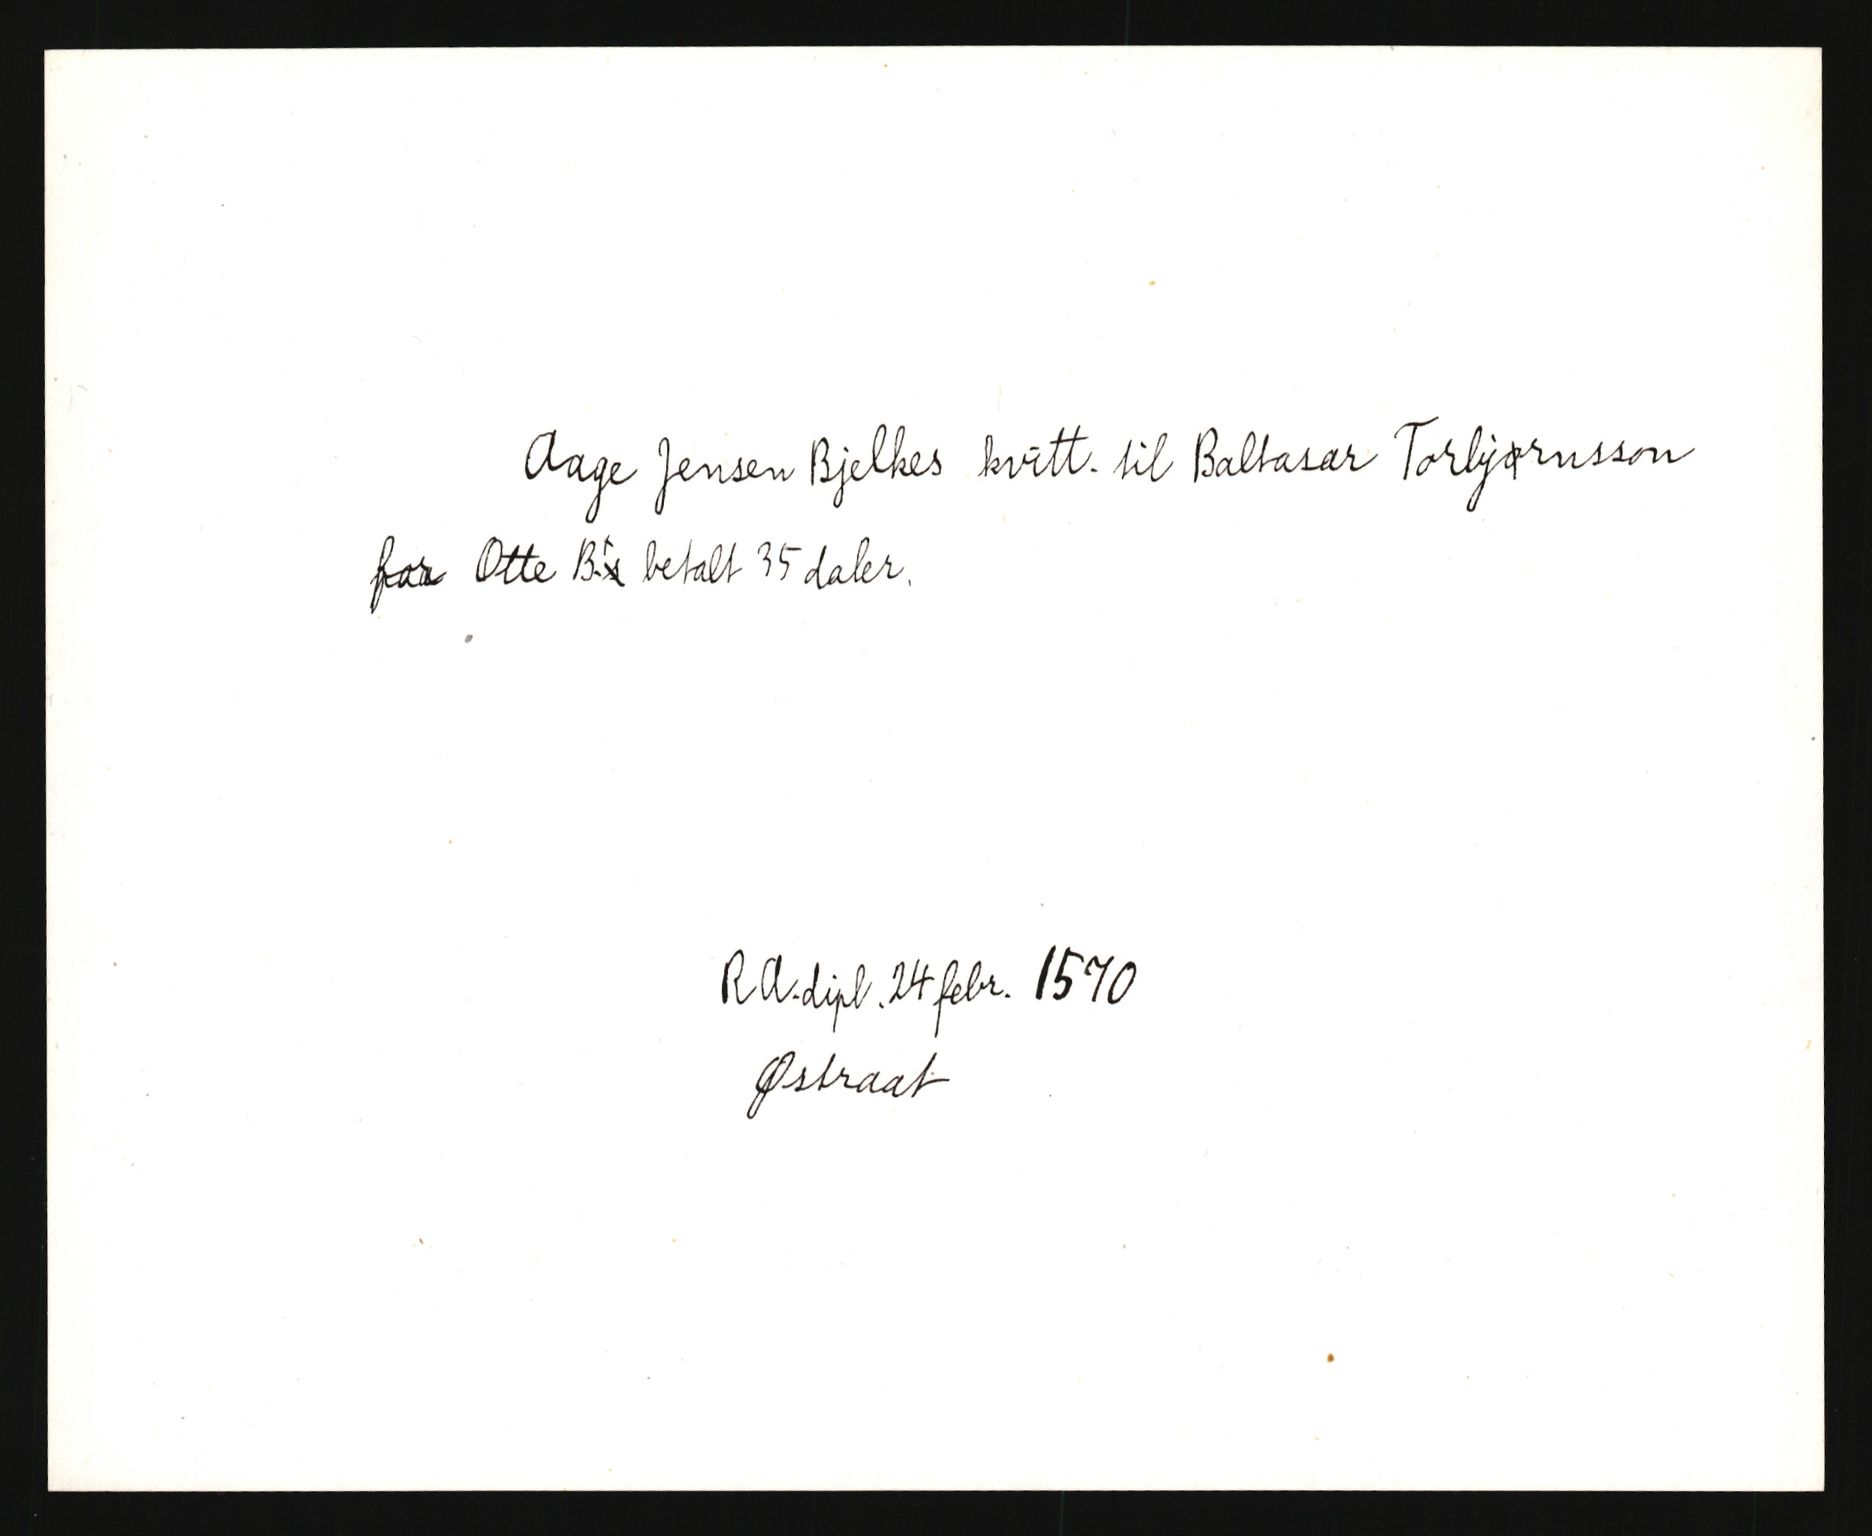 Aage Jensen Bjelkes kvitt. til Baltasar Torbjørnsson
Otte betalt 35 daler.
R A. dipl. 24 febr. 1570
Østraat